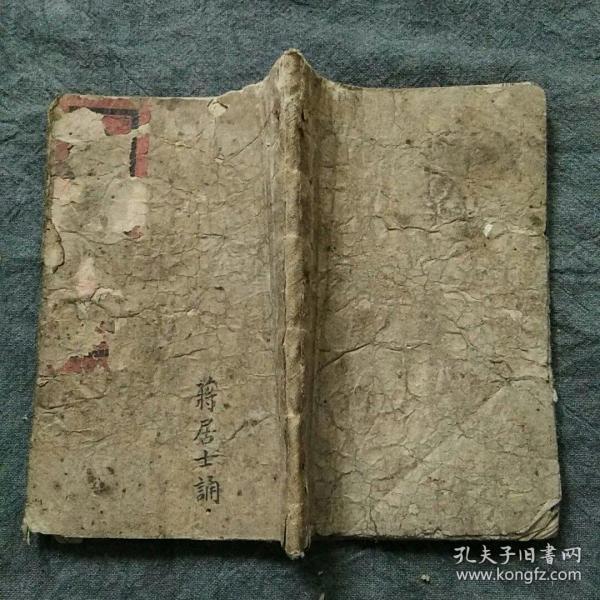 蔣居士誦
孔夫子旧書网
www.kongfz.com